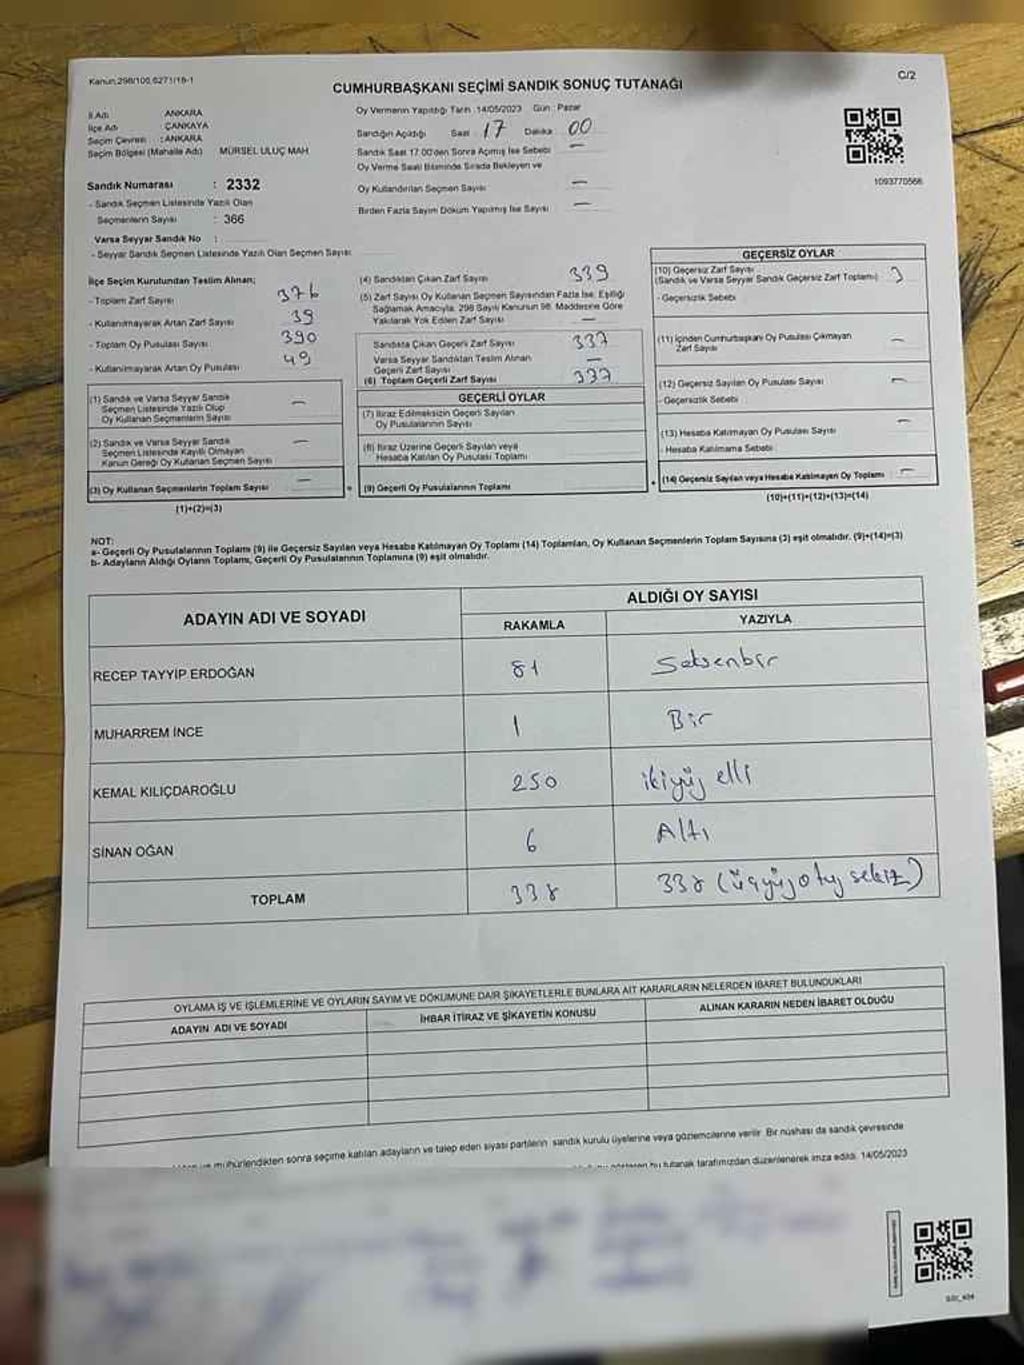 Kanun,298/100,6271/18-1
C/2
CUMHURBAŞKANI SEÇİMİ SANDIK SONUÇ TUTANAĞI
İl Adı ANKARA
İlçe Adı ÇANKAYA
Seçim Çevresi : ANKARA
Seçim Bölgesi (Mahalle Adı) MÜRSEL ULUÇ MAH
Sandık Numarası : 2332
- Sandık Seçmen Listesinde Yazılı Olan
Seçmenlerin Sayısı : 366
Varsa Seyyar Sandık No :
- Seyyar Sandık Seçmen Listesinde Yazılı Olan Seçmen Sayısı
Oy Vermenin Yapıldığı Tarih :14/05/2023 Gün : Pazar
Sandığın Açıldığı Saat : 17 Dakika : 00
Sandık Saat 17.00'den Sonra Açılmış İse Sebebi —
Oy Verme Saati Bitiminde Sırada Bekleyen ve
Oy Kullandırılan Seçmen Sayısı —
Birden Fazla Sayım Döküm Yapılmış İse Sayısı —
1093770566
İlçe Seçim Kurulundan Teslim Alınan;
- Toplam Zarf Sayısı 376
- Kullanılmayarak Artan Zarf Sayısı 39
- Toplam Oy Pusulası Sayısı 390
- Kullanılmayarak Artan Oy Pusulası 49
(1) Sandık ve Varsa Seyyar Sandık
Seçmen Listesinde Yazılı Olup
Oy Kullanan Seçmenlerin Sayısı —
(2) Sandık ve Varsa Seyyar Sandık
Seçmen Listesinde Kayıtlı Olmayan
Kanun Gereği Oy Kullanan Seçmen Sayısı —
(3) Oy Kullanan Seçmenlerin Toplam Sayısı —
(1)+(2)=(3)
(4) Sandıktan Çıkan Zarf Sayısı 339
(5) Zarf Sayısı Oy Kullanan Seçmen Sayısından Fazla İse, Eşitliği
Sağlamak Amacıyla, 298 Sayılı Kanunun 98. Maddesine Göre
Yakılarak Yok Edilen Zarf Sayısı —
Sandıkta Çıkan Geçerli Zarf Sayısı 337
Varsa Seyyar Sandıktan Teslim Alınan
Geçerli Zarf Sayısı —
(6) Toplam Geçerli Zarf Sayısı 337
GEÇERLİ OYLAR
(7) İtiraz Edilmeksizin Geçerli Sayılan
Oy Pusulalarının Sayısı
(8) İtiraz Üzerine Geçerli Sayılan veya
Hesaba Katılan Oy Pusulası Toplamı
(9) Geçerli Oy Pusulalarının Toplamı
GEÇERSİZ OYLAR
(10) Geçersiz Zarf Sayısı
(Sandık ve Varsa Seyyar Sandık Geçersiz Zarf Toplamı)
- Geçersizlik Sebebi
(11) İçinden Cumhurbaşkanı Oy Pusulası Çıkmayan
Zarf Sayısı —
(12) Geçersiz Sayılan Oy Pusulası Sayısı —
- Geçersizlik Sebebi
(13) Hesaba Katılmayan Oy Pusulası Sayısı —
- Hesaba Katılmama Sebebi
(14) Geçersiz Sayılan veya Hesaba Katılmayan Oy Toplamı —
(10)+(11)+(12)+(13)=(14)
NOT:
a- Geçerli Oy Pusulalarının Toplamı (9) ile Geçersiz Sayılan veya Hesaba Katılmayan Oy Toplamı (14) Toplamları, Oy Kullanan Seçmenlerin Toplam Sayısına (3) eşit olmalıdır. (9)+(14)=(3)
b- Adayların Aldığı Oyların Toplamı, Geçerli Oy Pusulalarının Toplamına (9) eşit olmalıdır.
ADAYIN ADI VE SOYADI
ALDIĞI OY SAYISI
RAKAMLA YAZIYLA
RECEP TAYYİP ERDOĞAN 81 Seksenbir
MUHARREM İNCE 1 Bir
KEMAL KILIÇDAROĞLU 250 ikiyüz elli
SİNAN OĞAN 6 Altı
TOPLAM 338 338 (üçyüzotuz sekiz)
OYLAMA İŞ VE İŞLEMLERİNE VE OYLARIN SAYIM VE DÖKÜMÜNE DAİR ŞİKAYETLERLE BUNLARA AİT KARARLARIN NELERDEN İBARET BULUNDUKLARI
ADAYIN ADI VE SOYADI İHBAR İTİRAZ VE ŞİKAYETİN KONUSU ALINAN KARARIN NEDEN İBARET OLDUĞU
mühürlendikten sonra seçime katılan adayların ve talep eden siyasi partilerin sandık kurulu üyelerine veya gözlemcilerine verilir. Bir nüshası da sandık çevresinde
bu tutanak tarafımızdan düzenlenerek imza edildi. 14/05/2023